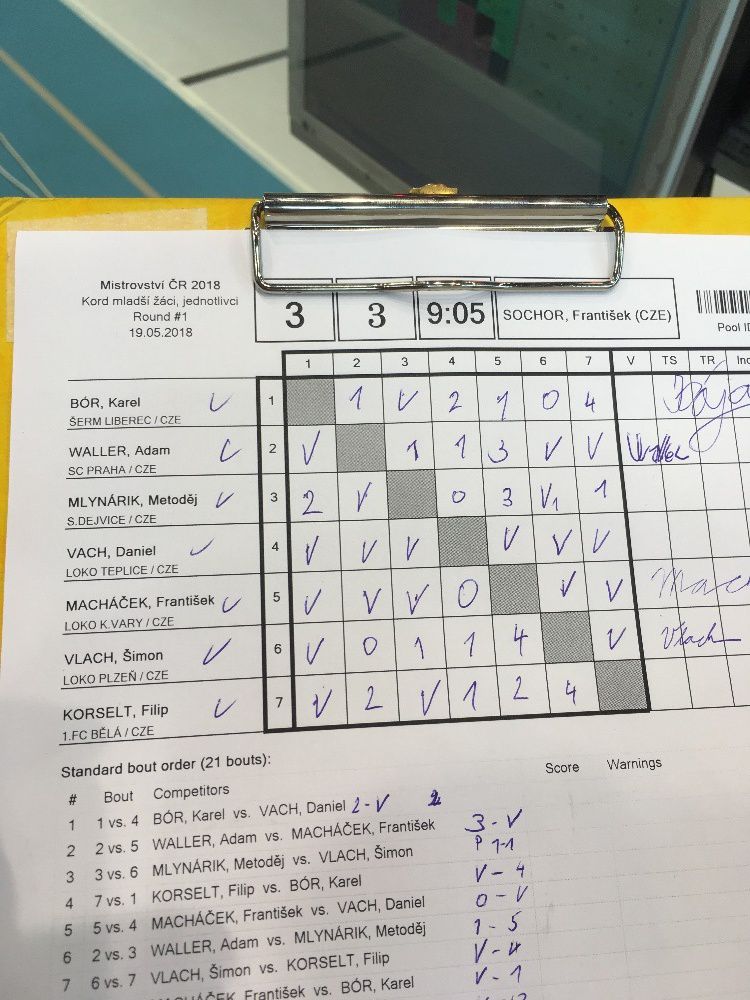 Mistrovství ČR 2018
Kord mladší žáci, jednotlivci
Round #1
19.05.2018
3 3 9:05 SOCHOR, František (CZE)
Pool
1 2 3 4 5 6 7 V TS TR
BÓR, Karel V 1 1 V 2 1 0 4
ŠERM LIBEREC / CZE
WALLER, Adam V 2 V 1 1 3 V V
SC PRAHA / CZE
MLYNÁRIK, Metoděj V 3 2 V 0 3 V1 1
S.DEJVICE / CZE
VACH, Daniel V 4 V V V V V V
LOKO TEPLICE / CZE
MACHÁČEK, František V 5 V V V 0 V V
LOKO K.VARY / CZE
VLACH, Šimon V 6 V 0 1 1 4 V Vlach
LOKO PLZEŇ / CZE
KORSELT, Filip V 7 V 2 V 1 2 4
1.FC BĚLÁ / CZE
Standard bout order (21 bouts):
# Bout Competitors Score Warnings
1 1 vs. 4 BÓR, Karel vs. VACH, Daniel 2-V
2 2 vs. 5 WALLER, Adam vs. MACHÁČEK, František 3-V
3 3 vs. 6 MLYNÁRIK, Metoděj vs. VLACH, Šimon P 1-1
4 7 vs. 1 KORSELT, Filip vs. BÓR, Karel V-4
5 5 vs. 4 MACHÁČEK, František vs. VACH, Daniel 0-V
6 2 vs. 3 WALLER, Adam vs. MLYNÁRIK, Metoděj 1-5
7 6 vs. 7 VLACH, Šimon vs. KORSELT, Filip V-4
MACHÁČEK, František vs. BÓR, Karel V-1